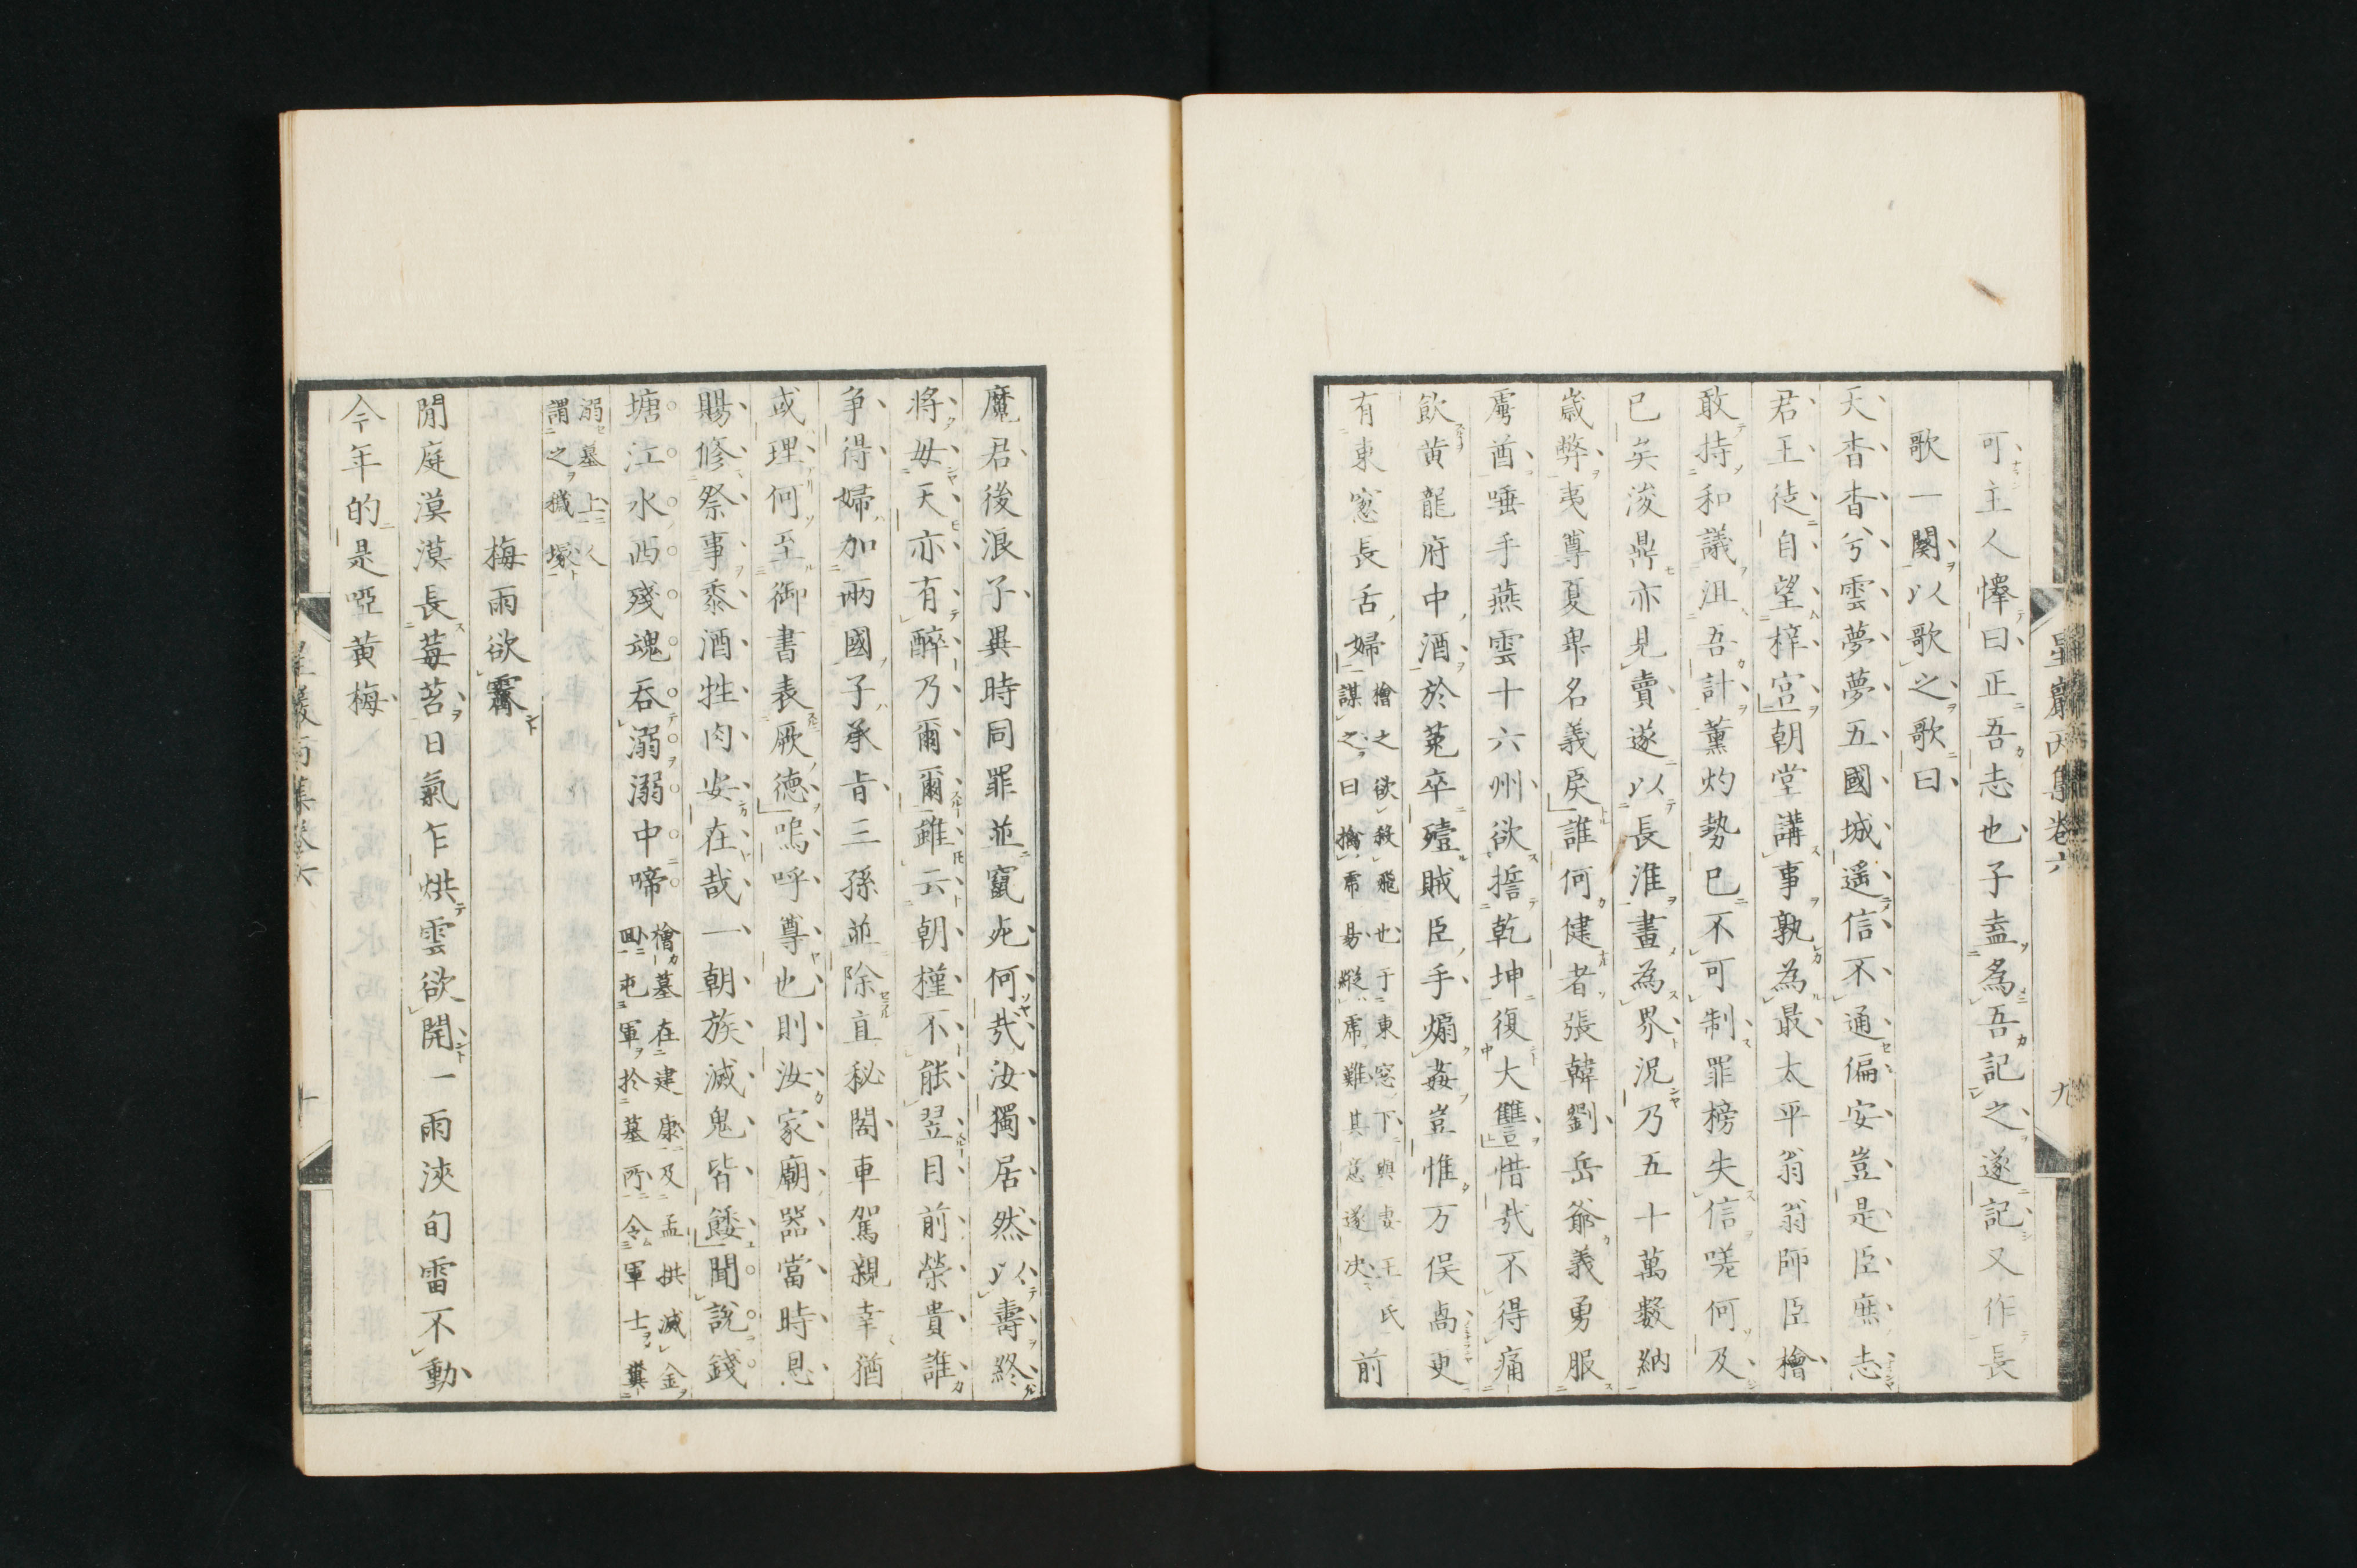 可主人懌曰正吾志也子盍為吾記之遂記又作長
歌一闋以歌之歌曰
天杳杳兮雲夢夢五國城遥信不通偏安豈是臣庶志
君王徒自望梓宮朝堂講事孰為最太平翁翁師臣檜
敢持和議沮吾計薫灼勢已不可制罪榜失信嗟何及
已矣浚鼎亦見賣遂以長淮畫為界況乃五十萬數納
歳弊夷尊夏卑名義戾誰何健者張韓劉岳爺義勇服
虜酋唾手燕雲十六州欲擔乾坤復大讐惜哉不得痛
飲黄龍府中酒於菟卒殪賊臣手煽姦豈惟万俟卨更
有東窓長舌婦檜之欲殺飛也于東窓下與妻王氏
謀之曰擒虎易縱虎難其意遂决前
魔君後浪子異時同罪並竄死何哉汝獨居然以壽終
將毋天亦有醉乃爾爾雖云朝槿不能翌目前榮貴誰
争得婦加兩國子承旨三孫並除直秘閣車駕親幸猶
或理何至御書表厥德嗚呼尊也則汝家廟器當時恩
賜修祭事黍酒牲肉安在哉一朝族滅鬼皆餒聞說錢
塘江水西殘魂呑溺溺中啼檜墓在建康及孟拱滅金
回屯軍於墓所令軍士糞
溺墓上人
謂之穢塚
梅雨欲霽
閒庭漠漠長莓苔日氣乍烘雲欲開一雨浹旬雷不動
今年的是啞黄梅
九
十